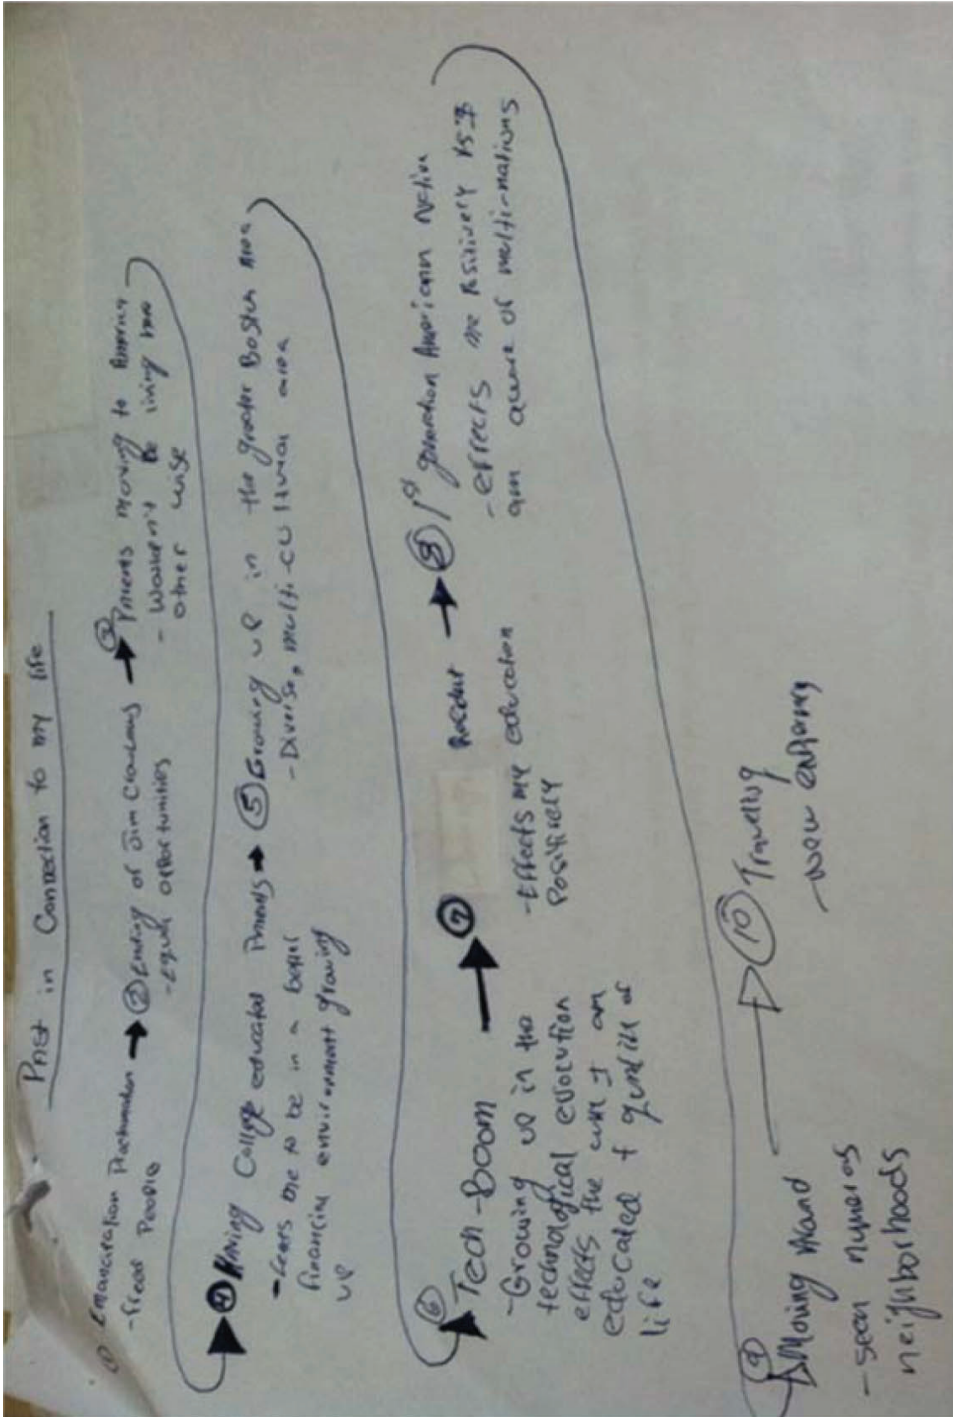 Past in Connection to my life
① Emancipation Proclamation
- freed People
② Ending of Jim Crow Laws
- Equal opportunities
③ Parents moving to America
- Wouldn't be living here
other wise
④ Having College educated Parents
- Lears me to be in a better
financial environment growing
up
⑤ Growing up in the greater Boston Area
- Diverse, multi-cultural area
⑥ Tech-Boom
- Growing up in the
technological evolution
effects the way I am
educated + quality of
life
⑦
- Effects my education
Positively
⑧ 1st generation American Native
- effects me Positively as I
am aware of multi-nations
⑨ Moving
- seen numerous
neighborhoods
⑩ Travelling
- new